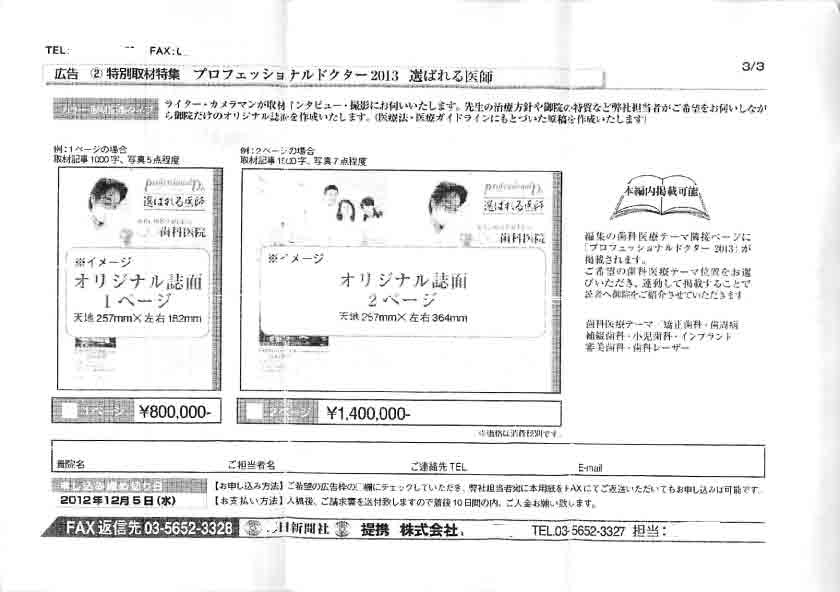 TEL: FAX:
3/3
広告 ② 特別取材特集 プロフェッショナルドクター2013 選ばれる医師
ライター・カメラマンが取材インタビュー・撮影にお伺いいたします。先生の治療方針や御院の特質など弊社担当者がご希望をお伺いしなが
ら御院だけのオリジナル誌面を作成いたします。(医療法・医療ガイドラインにもとづいた原稿を作成いたします)
例:1ページの場合
取材記事1000字、写真5点程度
例:2ページの場合
取材記事1500字、写真7点程度
Professional Dr.
選ばれる医師
歯科医院
※イメージ
オリジナル誌面
1ページ
天地257mm×左右182mm
Professional Dr.
選ばれる医師
歯科医院
※イメージ
オリジナル誌面
2ページ
天地257mm×左右364mm
本編内掲載可能
編集の歯科医療テーマ隣接ページに
「プロフェッショナルドクター2013」が
掲載されます。
ご希望の歯科医療テーマ位置をお選
びいただき、連動して掲載することで
読者へ御院をご紹介させていただきます
歯科医療テーマ 矯正歯科・歯周病
補綴歯科・小児歯科・インプラント
審美歯科・歯科レーザー
1ページ ¥800,000-
2ページ ¥1,400,000-
※価格は消費税別です。
貴院名 ご担当者名 ご連絡先TEL E-mail
申し込み締め切り日
2012年12月5日(水)
【お申し込み方法】ご希望の広告枠の□欄にチェックしていただき、弊社担当者宛に本用紙をFAXにてご返送いただいてもお申し込みは可能です。
【お支払い方法】入稿後、ご請求書を送付致しますので着後10日間の内、ご入金お願い致します。
FAX返信先 03-5652-3328 日新聞社 提携 株式会社 TEL.03-5652-3327 担当: